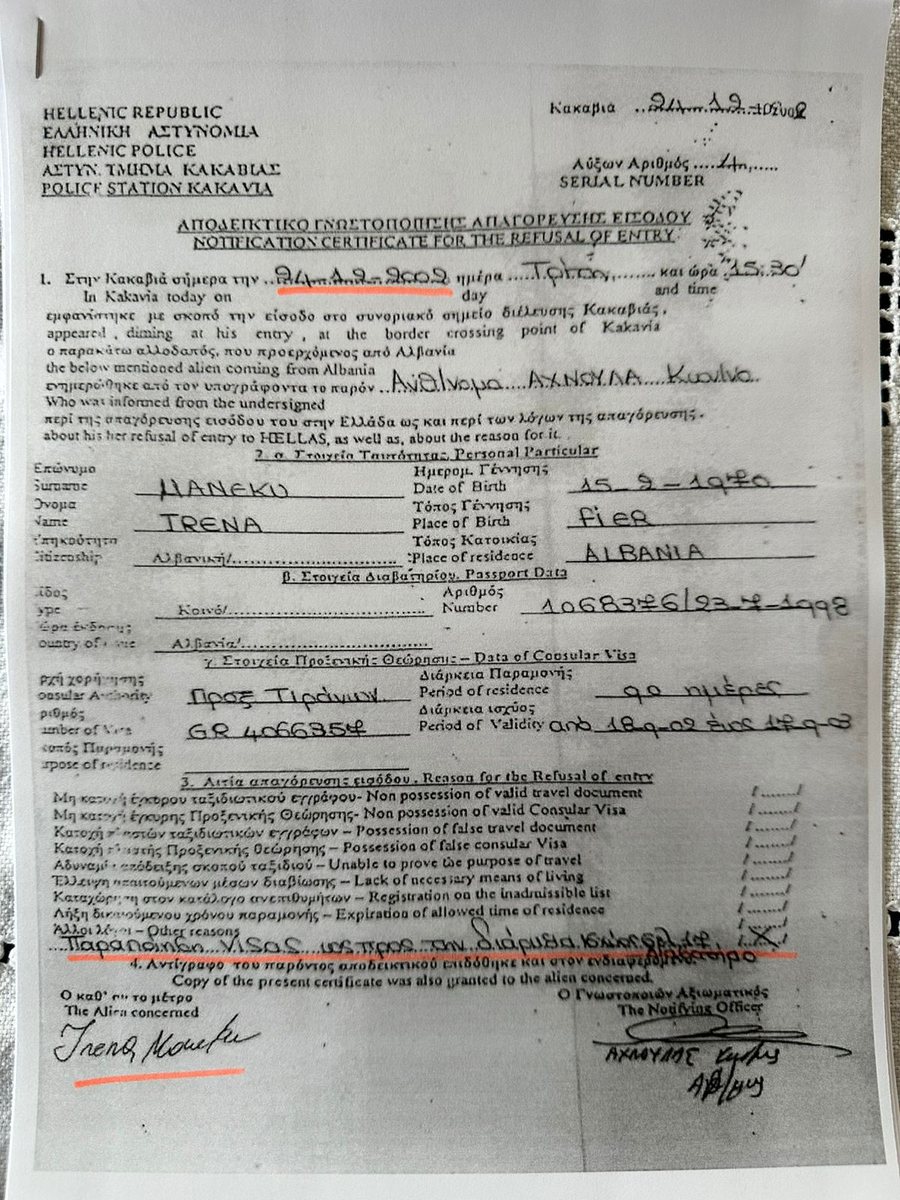 HELLENIC REPUBLIC
ΕΛΛΗΝΙΚΗ ΑΣΤΥΝΟΜΙΑ
HELLENIC POLICE
ΑΣΤΥΝ. ΤΜΗΜΑ ΚΑΚΑΒΙΑΣ
POLICE STATION KAKAVIA
Κακαβιά ..24-12-
Αύξων Αριθμός
SERIAL NUMBER
ΑΠΟΔΕΙΚΤΙΚΟ ΓΝΩΣΤΟΠΟΙΗΣΗΣ ΑΠΑΓΟΡΕΥΣΗΣ ΕΙΣΟΔΟΥ
NOTIFICATION CERTIFICATE FOR THE REFUSAL OF ENTRY
1. Στην Κακαβιά σήμερα την ..24-12-2002 ημέρα ....Τρίτη,....... και ώρα 15:30'
In Kakavia today on day and time
εμφανίστηκε με σκοπό την είσοδο στο συνοριακό σημείο διέλευσης Κακαβιάς,
appeared , diming at his entry , at the border crossing point of Kakavia
ο παρακάτω αλλοδαπός, που προερχόμενος από Αλβανία
the below mentioned alien coming from Albania
ενημερώθηκε από τον υπογράφοντα το παρόν
Who was informed from the undersigned
περί της απαγόρευσης εισόδου του στην Ελλάδα ως και περί των λόγων της απαγόρευσης.
about his her refusal of entry to HELLAS, as well as, about the reason for it.
2. α. Στοιχεία Ταυτότητας. Personal Particular
Επώνυμο Ημερομ. Γέννησης
Surname MANEKU Date of Birth 15-2-1970
Όνομα Τόπος Γέννησης
Name IRENA Place of Birth FiER
Υπηκοότητα Τόπος Κατοικίας
Citizenship Αλβανική/........................ Place of residence ALBANIA
β. Στοιχεία Διαβατηρίου. Passport Data
ίδος Αριθμός
ype Κοινό/............................ Number 1068376/23-7-1998
ώρα έκδοσης
ountry of Αλβανία/..........................
γ. Στοιχεία Προξενικής Θεώρησης – Data of Consular Visa
ρχή χορήγησης Διάρκεια Παραμονής
onsular Authority Προξ Τιράνων Period of residence 90 ημέρες
ριθμός Διάρκεια ισχύος
umber of Visa GR 4066357 Period of Validity από 18-9-02 έως 17-9-03
κοπός Παραμονής
rpose of residence
3. Αιτία απαγόρευσης εισόδου. Reason for the Refusal of entry
Μη κατοχή έγκυρου ταξιδιωτικού εγγράφου- Non possession of valid travel document /....../
Μη κατοχή έγκυρης Προξενικής Θεώρησης- Non possession of valid Consular Visa /....../
Κατοχή πλαστών ταξιδιωτικών εγγράφων – Possession of false travel document /....../
Κατοχή πλαστής Προξενικής θεώρησης – Possession of false consular Visa /....../
Αδυναμία απόδειξης σκοπού ταξιδιού – Unable to prove the purpose of travel /....../
Έλλειψη απαιτούμενων μέσων διαβίωσης – Lack of necessary means of living /....../
Καταχώρηση στον κατάλογο ανεπιθυμήτων – Registration on the inadmissible list /....../
Λήξη δικαιούμενου χρόνου παραμονής – Expiration of allowed time of residence /....../
Άλλοι λόγοι – Other reasons
Παραποίηση Visas ως προς την διάρκεια ισχύος /..X../
4. Αντίγραφο του παρόντος αποδεικτικού επιδόθηκε και στον ενδιαφερόμενο.
Copy of the present certificate was also granted to the alien concerned.
Ο γνωστοποιών Αξιωματικός
The Alien concerned The Notifying Officer
Irena